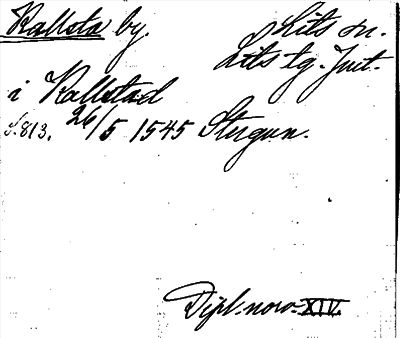 Kallsta by. Lits sn.
Lits tg. Jmt.
i Kallstad
S.813. 26/5 1545 Stugun.
Dipl. norv. XIV.